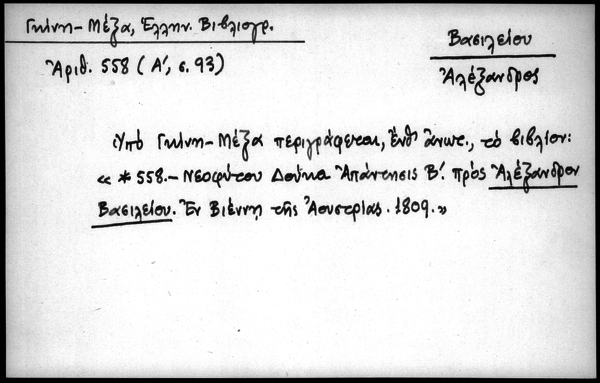 Γκίνη-Μέξα, Ἑλλην. Βιβλιογρ.
Ἀριθ. 558 (Α', σ. 93)
Βασιλείου
Ἀλέξανδρος
Ὑπό Γκίνη-Μέξα περιγράφεται, ἔνθ' ἄνωτ., τό βιβλίον:
« * 558.- Νεοφύτου Δούκα Ἀπάντησις Β'. πρός Ἀλέξανδρον
Βασιλείου. Ἐν Βιέννῃ τῆς Ἀουστρίας. 1809. »